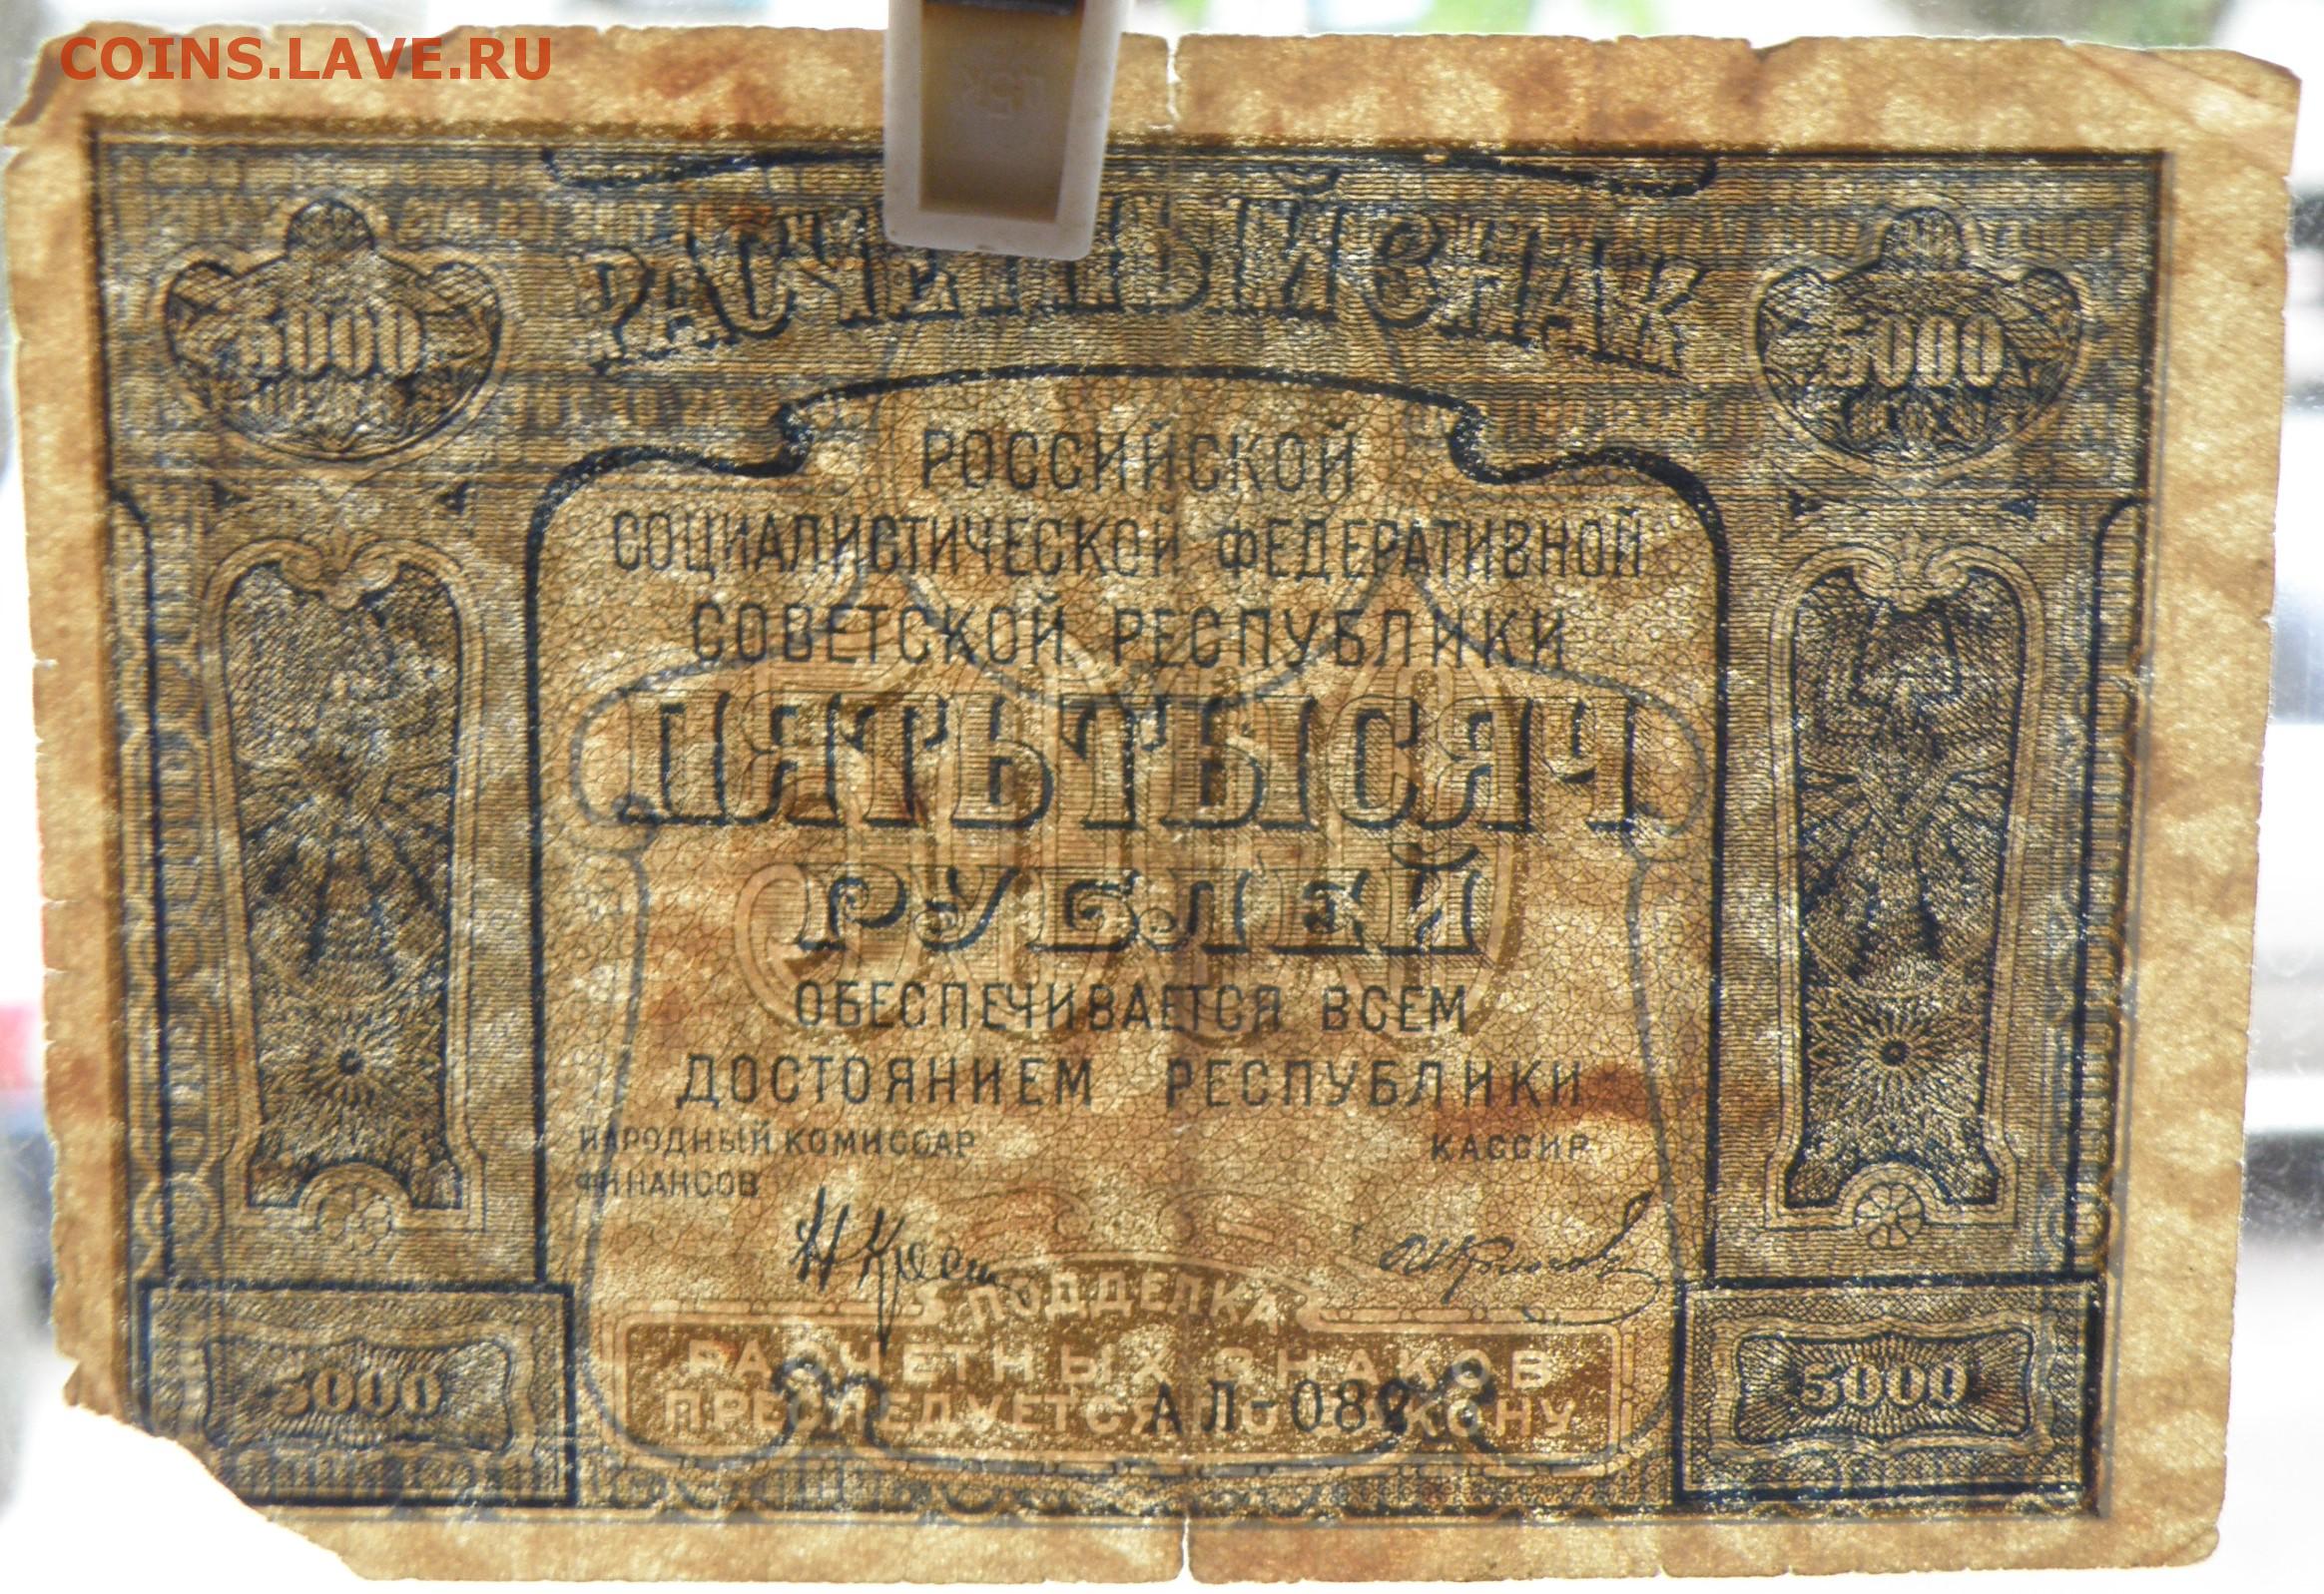 COINS.LAVE.RU
РАСЧЕТНЫЙ ЗНАК
5000
5000
РОССИЙСКОЙ
СОЦИАЛИСТИЧЕСКОЙ ФЕДЕРАТИВНОЙ
СОВЕТСКОЙ РЕСПУБЛИКИ
ПЯТЬ ТЫСЯЧ
РУБЛЕЙ
ОБЕСПЕЧИВАЕТСЯ ВСЕМ
ДОСТОЯНИЕМ РЕСПУБЛИКИ
НАРОДНЫЙ КОМИССАР
ФИНАНСОВ
КАССИР
ПОДДЕЛКА
РАСЧЕТНЫХ ЗНАКОВ
ПРЕСЛЕДУЕТСЯ ПО ЗАКОНУ
АЛ-082
5000
5000